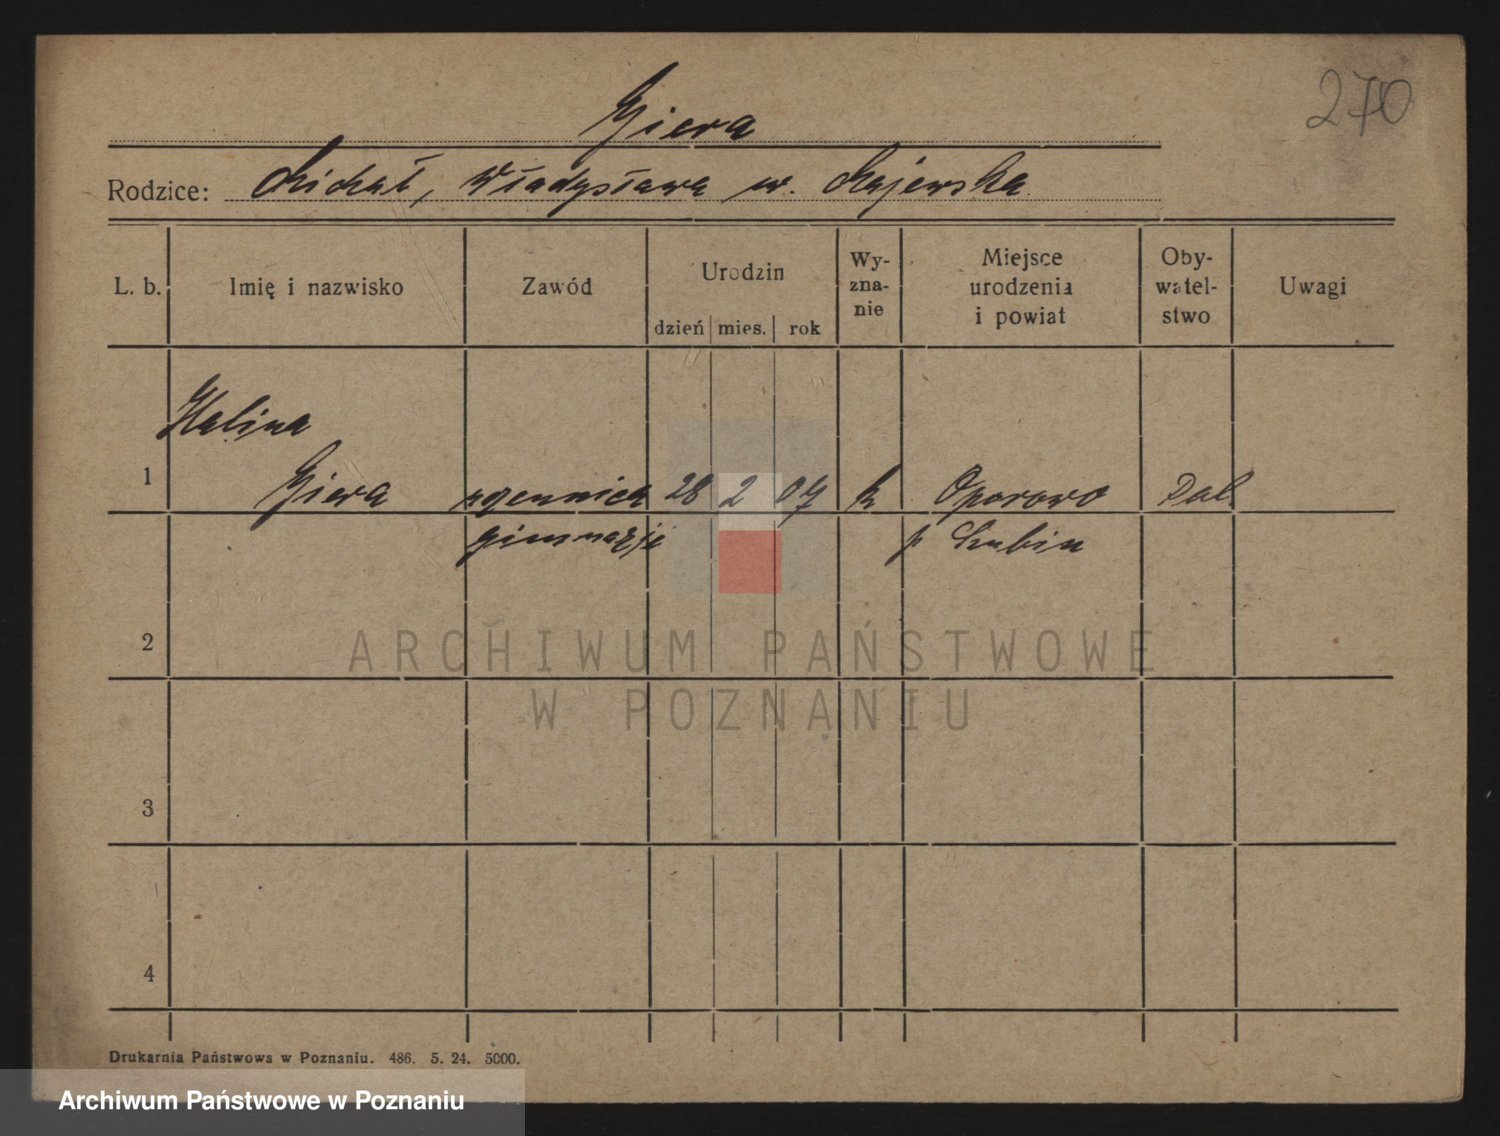 270
Giera
Rodzice: Michał, Władysława ur. Majewska
L. b.
Imię i nazwisko
Zawód
Urodzin
dzień mies. rok
Wy-
zna-
nie
Miejsce
urodzenia
i powiat
Oby-
watel-
stwo
Uwagi
Halina
1 Giera uczennica 28 2 07 k Oporowo Pol
gimnazja p Szubin
2
3
4
Drukarnia Państwowa w Poznaniu. 486. 5. 24. 5000.
ARCHIWUM PAŃSTWOWE
W POZNANIU
Archiwum Państwowe w Poznaniu